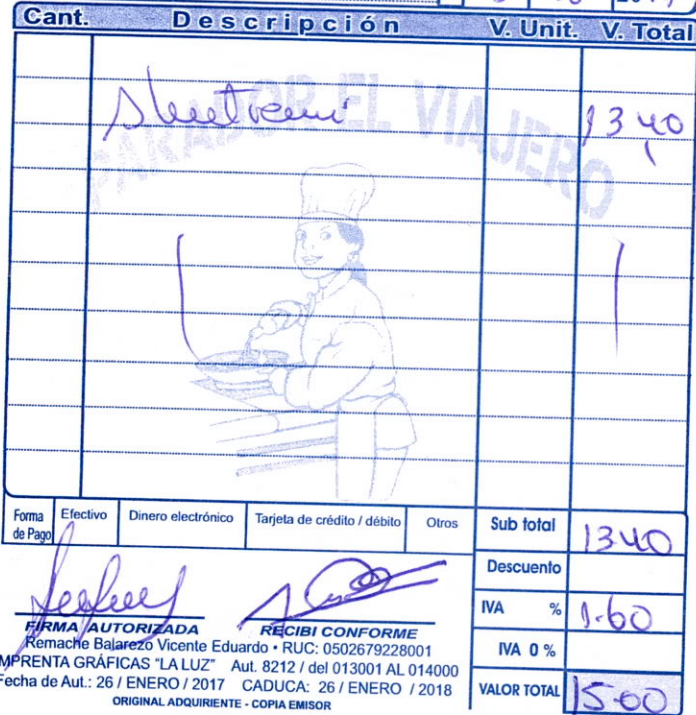 Cant. Descripción V. Unit. V. Total
PARADOR EL VIAJERO
1340
Forma de Pago Efectivo Dinero electrónico Tarjeta de crédito / débito Otros Sub total 13.40
Descuento
IVA % 1.60
IVA 0 %
VALOR TOTAL 15.00
FIRMA AUTORIZADA RECIBI CONFORME
Remache Balarezo Vicente Eduardo • RUC: 0502679228001
IMPRENTA GRÁFICAS "LA LUZ" Aut. 8212 / del 013001 AL 014000
Fecha de Aut.: 26 / ENERO / 2017 CADUCA: 26 / ENERO / 2018
ORIGINAL ADQUIRIENTE - COPIA EMISOR